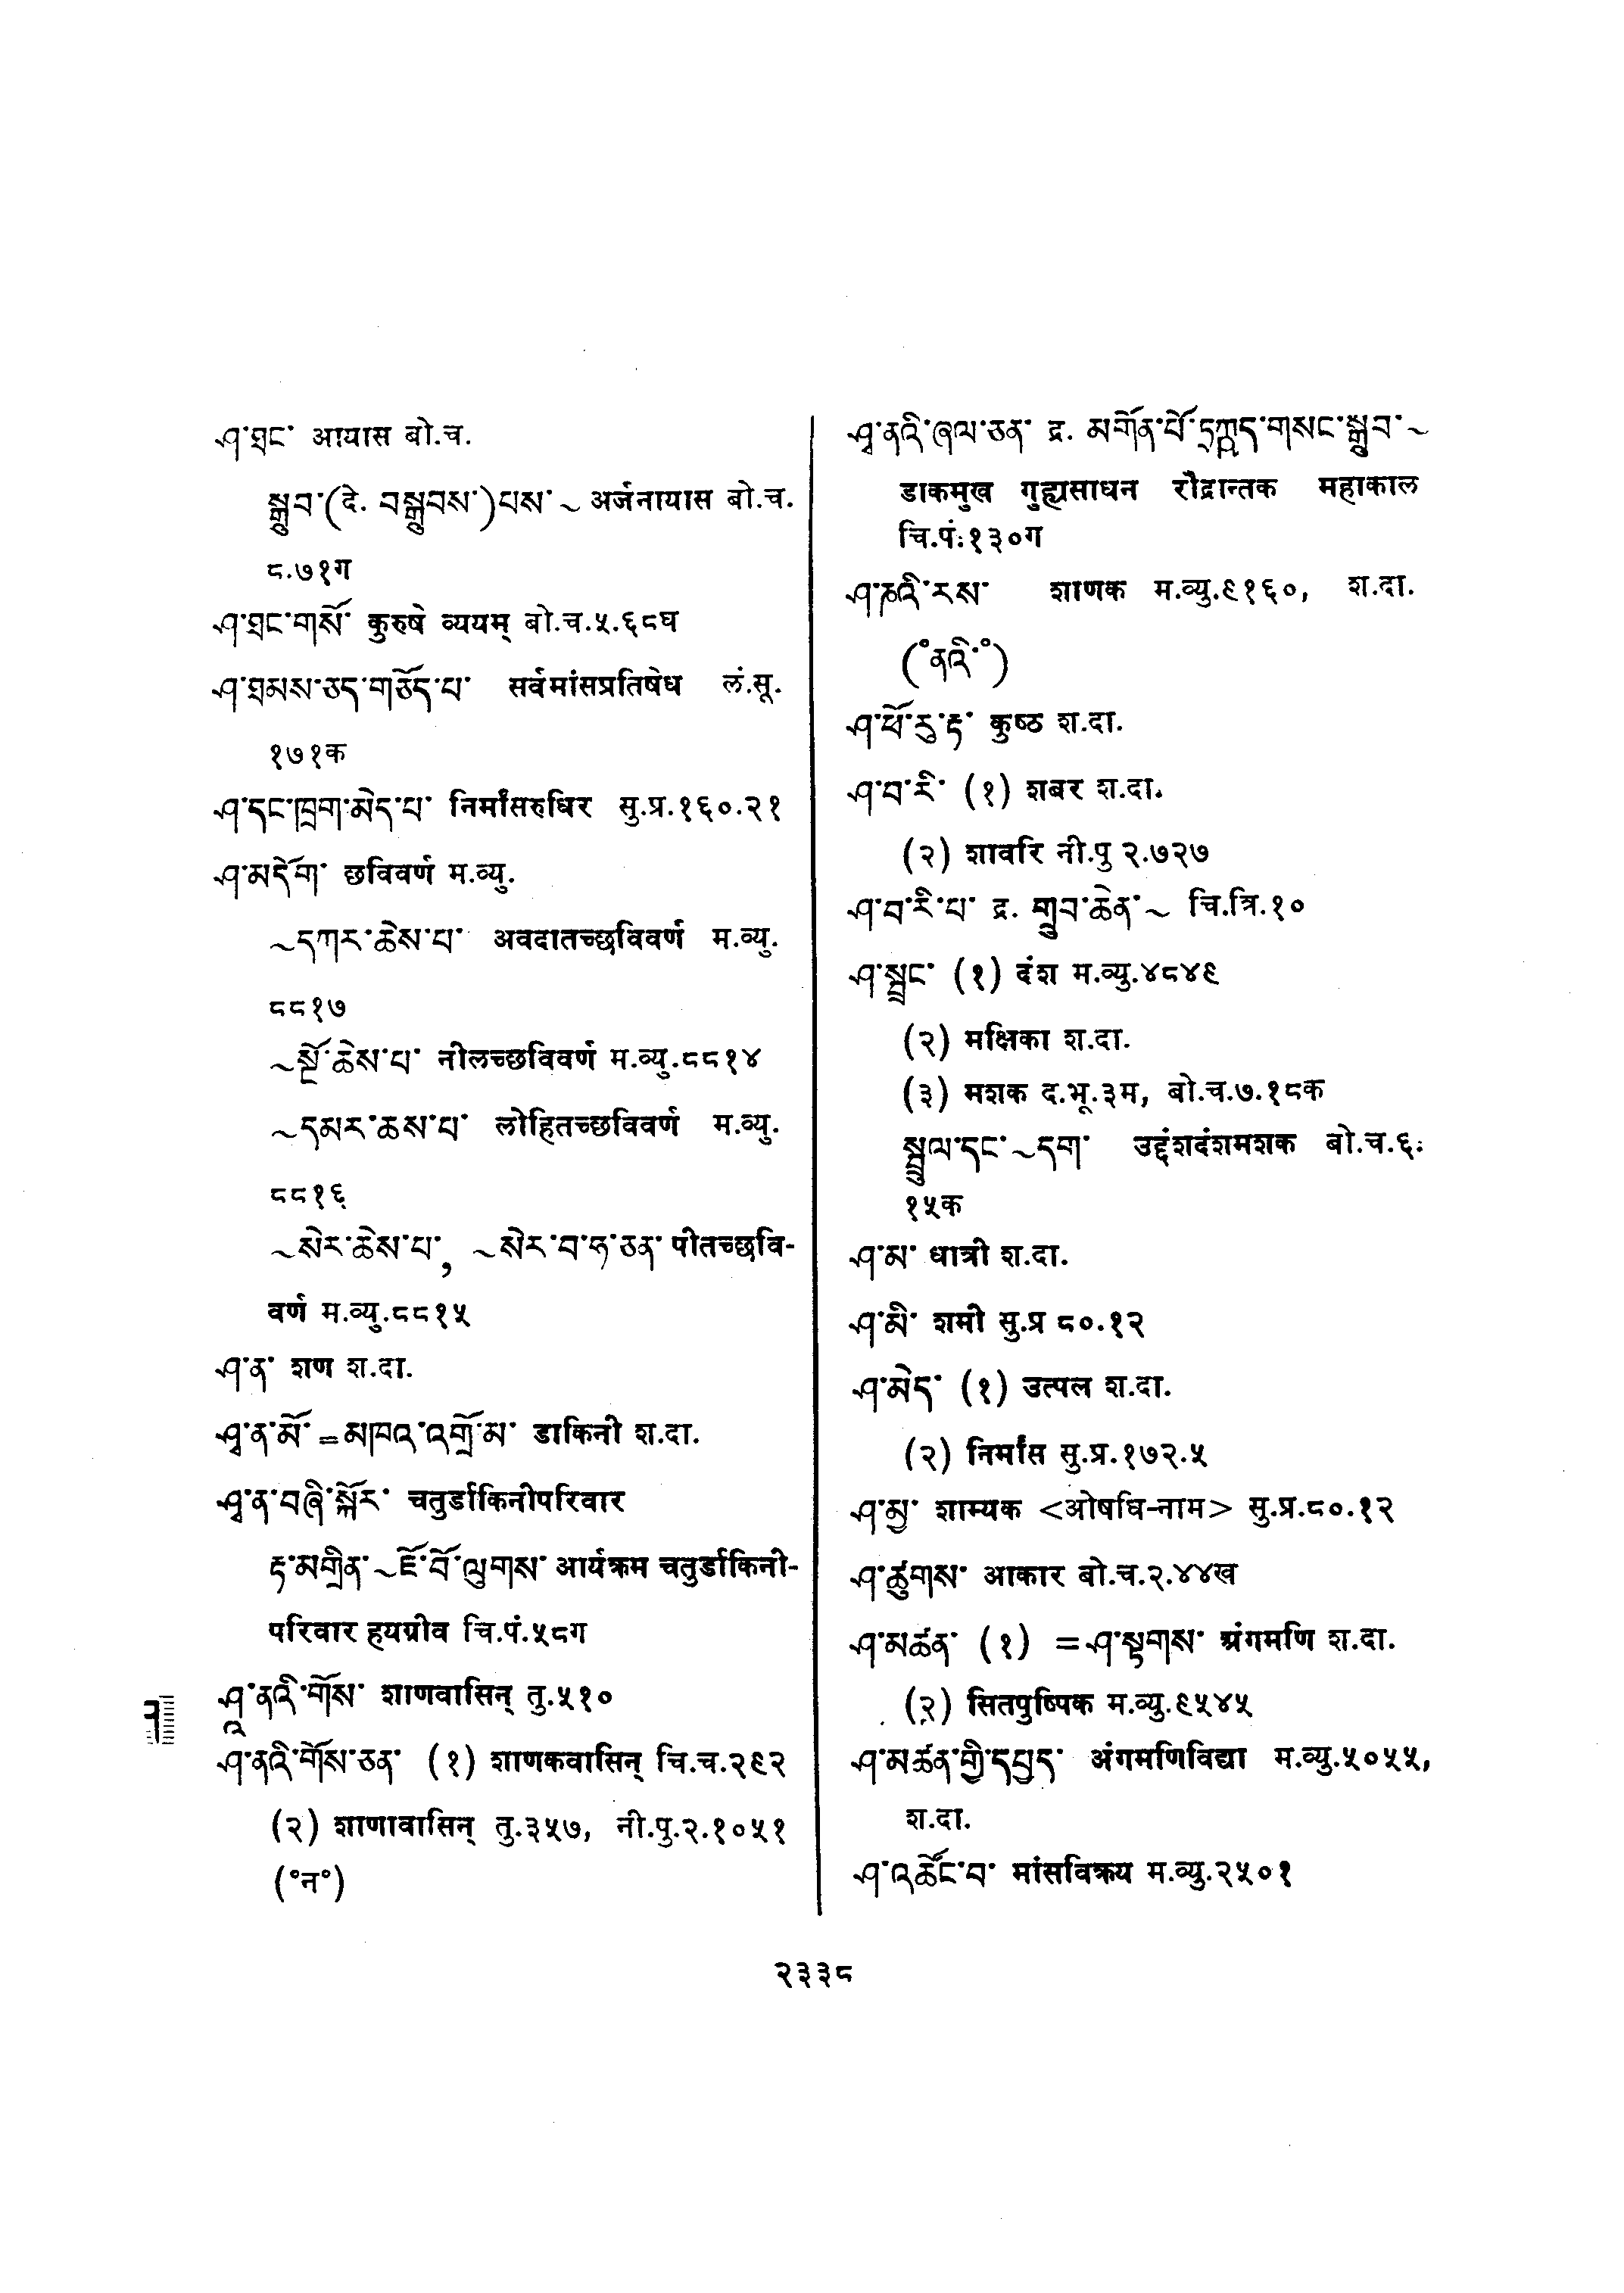 ཤ་ཐང་ आयास बो.च.
སྒྲུབ་(दे. བསྒྲུབས་)པས་ ~ अर्जनायास बो.च.
८.७१ग
ཤ་ཐང་གསོ་ कुरुषे व्ययम् बो.च.५.६८घ
ཤ་ཐམས་ཅད་གཅོད་པ་ सर्वमांसप्रतिषेध लं.सू.
१७१क
ཤ་དང་ཁྲག་མེད་པ་ निर्मांसरुधिर सु.प्र.१६०.२१
ཤ་མདོག་ छविवर्ण म.व्यु.
~དཀར་ཆེས་པ་ अवदातच्छविवर्ण म.व्यु.
८८१७
~སྔོ་ཆེས་པ་ नीलच्छविवर्ण म.व्यु.८८१४
~དམར་ཆས་པ་ लोहितच्छविवर्ण म.व्यु.
८८१६
~སེར་ཆེས་པ་, ~སེར་བ་ཧ་ཅན་ पीतच्छवि-
वर्ण म.व्यु.८८१५
ཤ་ན་ शण श.दा.
ཤྭ་ན་མོ་ =མཁའ་འགྲོ་མ་ डाकिनी श.दा.
ཤྭ་ན་བཞི་སྐོར་ चतुर्डाकिनीपरिवार
རྟ་མགྲིན་ ~ཇོ་བོ་ལུགས་ आर्यक्रम चतुर्डाकिनी-
परिवार हयग्रीव चि.पं.५८ग
ཤཱ་ནའི་གོས་ शाणवासिन् तु.५१०
ཤ་ནའི་གོས་ཅན་ (१) शाणकवासिन् चि.च.२९२
(२) शाणावासिन् तु.३५७, नी.पु.२.१०५१
(°न°)
ཤྭ་ནའི་ཞལ་ཅན་ द्र. མགོན་པོ་དྲག་གསང་སྒྲུབ་ ~
डाकमुख गुह्यसाधन रौद्रान्तक महाकाल
चि.पं.१३०ग
ཤ་ཎའི་རས་ शाणक म.व्यु.९१६०, श.दा.
(°ནའི་°)
ཤ་ཕོ་རུ་རྟ་ कुष्ठ श.दा.
ཤ་བ་རི་ (१) शबर श.दा.
(२) शावरि नी.पु २.७२७
ཤ་བ་རི་པ་ द्र. གྲུབ་ཆེན་ ~ चि.त्रि.१०
ཤ་སྦྲང་ (१) दंश म.व्यु.४८४९
(२) मक्षिका श.दा.
(३) मशक द.भू.३म, बो.च.७.१८क
སྦྲུལ་དང་ ~དག་ उद्दंशदंशमशक बो.च.६.
१५क
ཤ་མ་ धात्री श.दा.
ཤ་མི་ शमी सु.प्र ८०.१२
ཤ་མེད་ (१) उत्पल श.दा.
(२) निर्मांस सु.प्र.१७२.५
ཤ་མྱ་ शाम्यक <ओषधि-नाम> सु.प्र.८०.१२
ཤ་ཚུགས་ आकार बो.च.२.४४ख
ཤ་མཚན་ (१) =ཤ་རྟགས་ अंगमणि श.दा.
(२) सितपुष्पिक म.व्यु.९५४५
ཤ་མཚན་གྱི་དཔྱད་ अंगमणिविद्या म.व्यु.५०५५,
श.दा.
ཤ་འཚོང་བ་ मांसविक्रय म.व्यु.२५०१
२३३८